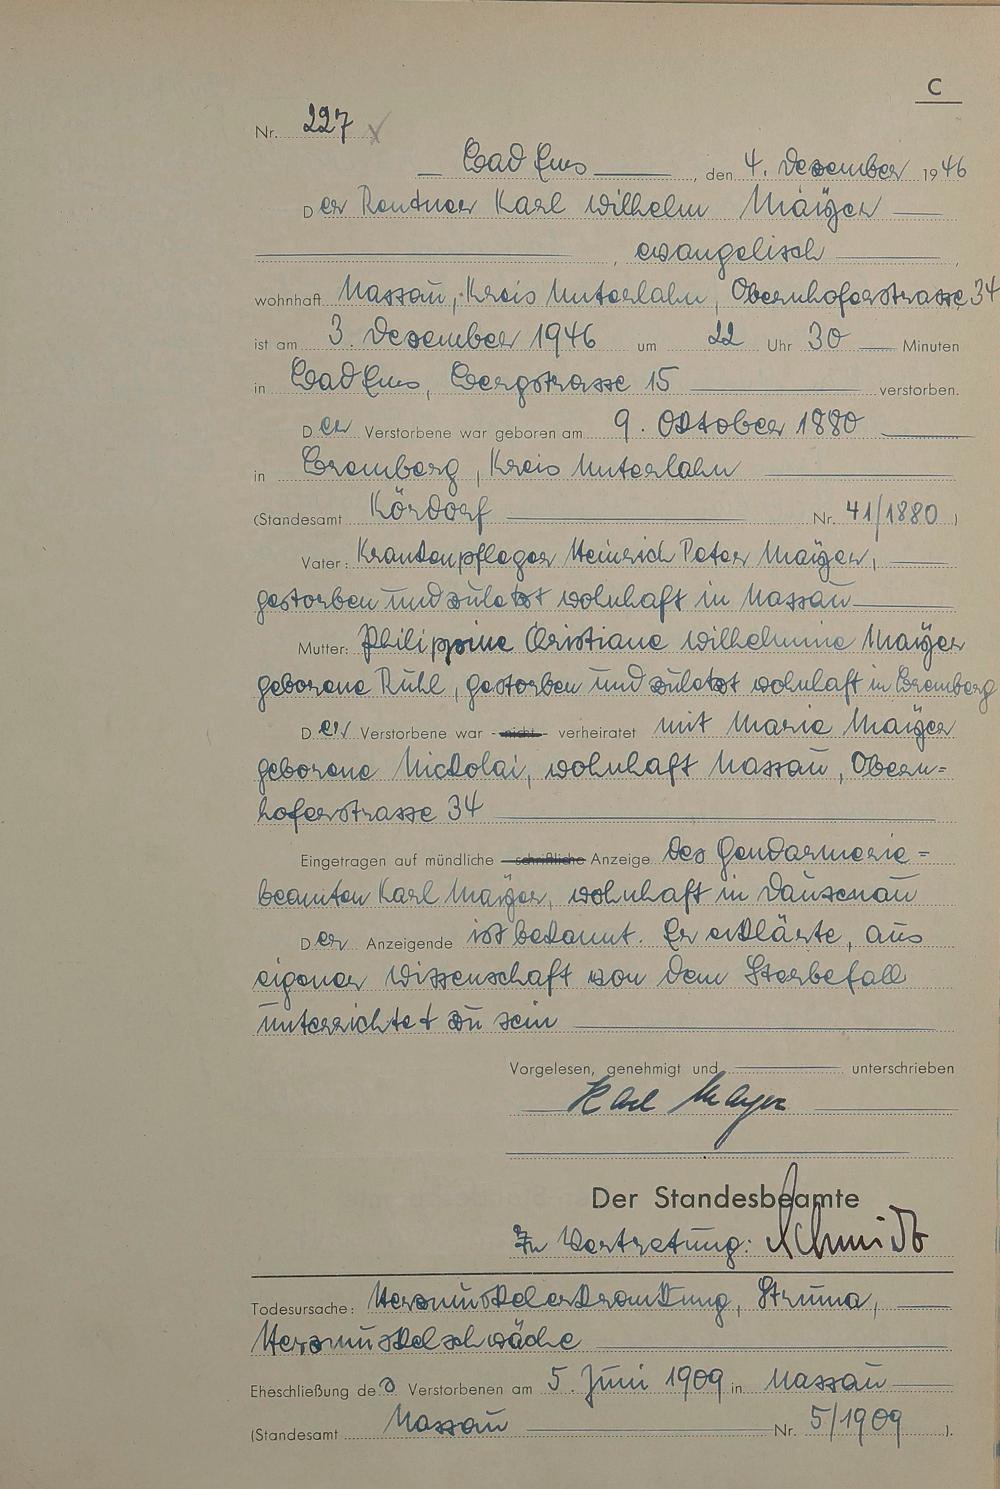 C
Nr. 227
Bad Ems, den 4. Dezember 1946
Der Rentner Karl Wilhelm Maÿer
, evangelisch,
wohnhaft Nassau, Kreis Unterlahn, Obernhoferstrasse 34
ist am 3. Dezember 1946 um 22 Uhr 30 Minuten
in Bad Ems, Bergstrasse 15 verstorben.
Der Verstorbene war geboren am 9. Oktober 1880
in Bremberg, Kreis Unterlahn
(Standesamt Kördorf Nr. 41/1880)
Vater: Krankenpfleger Heinrich Peter Maÿer,
gestorben und zuletzt wohnhaft in Nassau
Mutter: Philippine Christiane Wilhelmine Maÿer
geborene Rühl, gestorben und zuletzt wohnhaft in Bremberg
Der Verstorbene war - nicht - verheiratet mit Marie Maÿer
geborene Nickolai, wohnhaft Nassau, Obern=
hoferstrasse 34
Eingetragen auf mündliche - schriftliche Anzeige des Gendarmerie=
beamten Karl Maÿer, wohnhaft in Dausenau
Der Anzeigende ist bekannt. Er erklärte, aus
eigener Wissenschaft von dem Sterbefall
unterrichtet zu sein
Vorgelesen, genehmigt und unterschrieben
Karl Mayer
Der Standesbeamte
In Vertretung: Schmidt
Todesursache: Herzmuskelerkrankung, Struma,
Herzmuskelschwäche
Eheschließung des Verstorbenen am 5. Juni 1909 in Nassau
(Standesamt Nassau Nr. 5/1909).